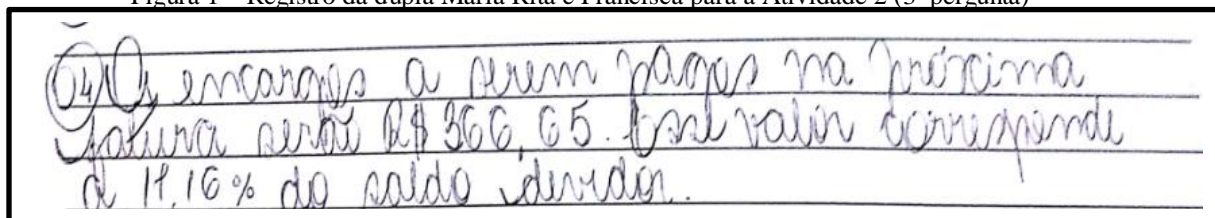 Figura 1 – Registro da dupla Maria Rita e Francisca para a Atividade 2 (3ª pergunta)
04) Os encargos a serem pagos na próxima
fatura serão R$ 366,65. Esse valor corresponde
a 11,16% do saldo devedor.